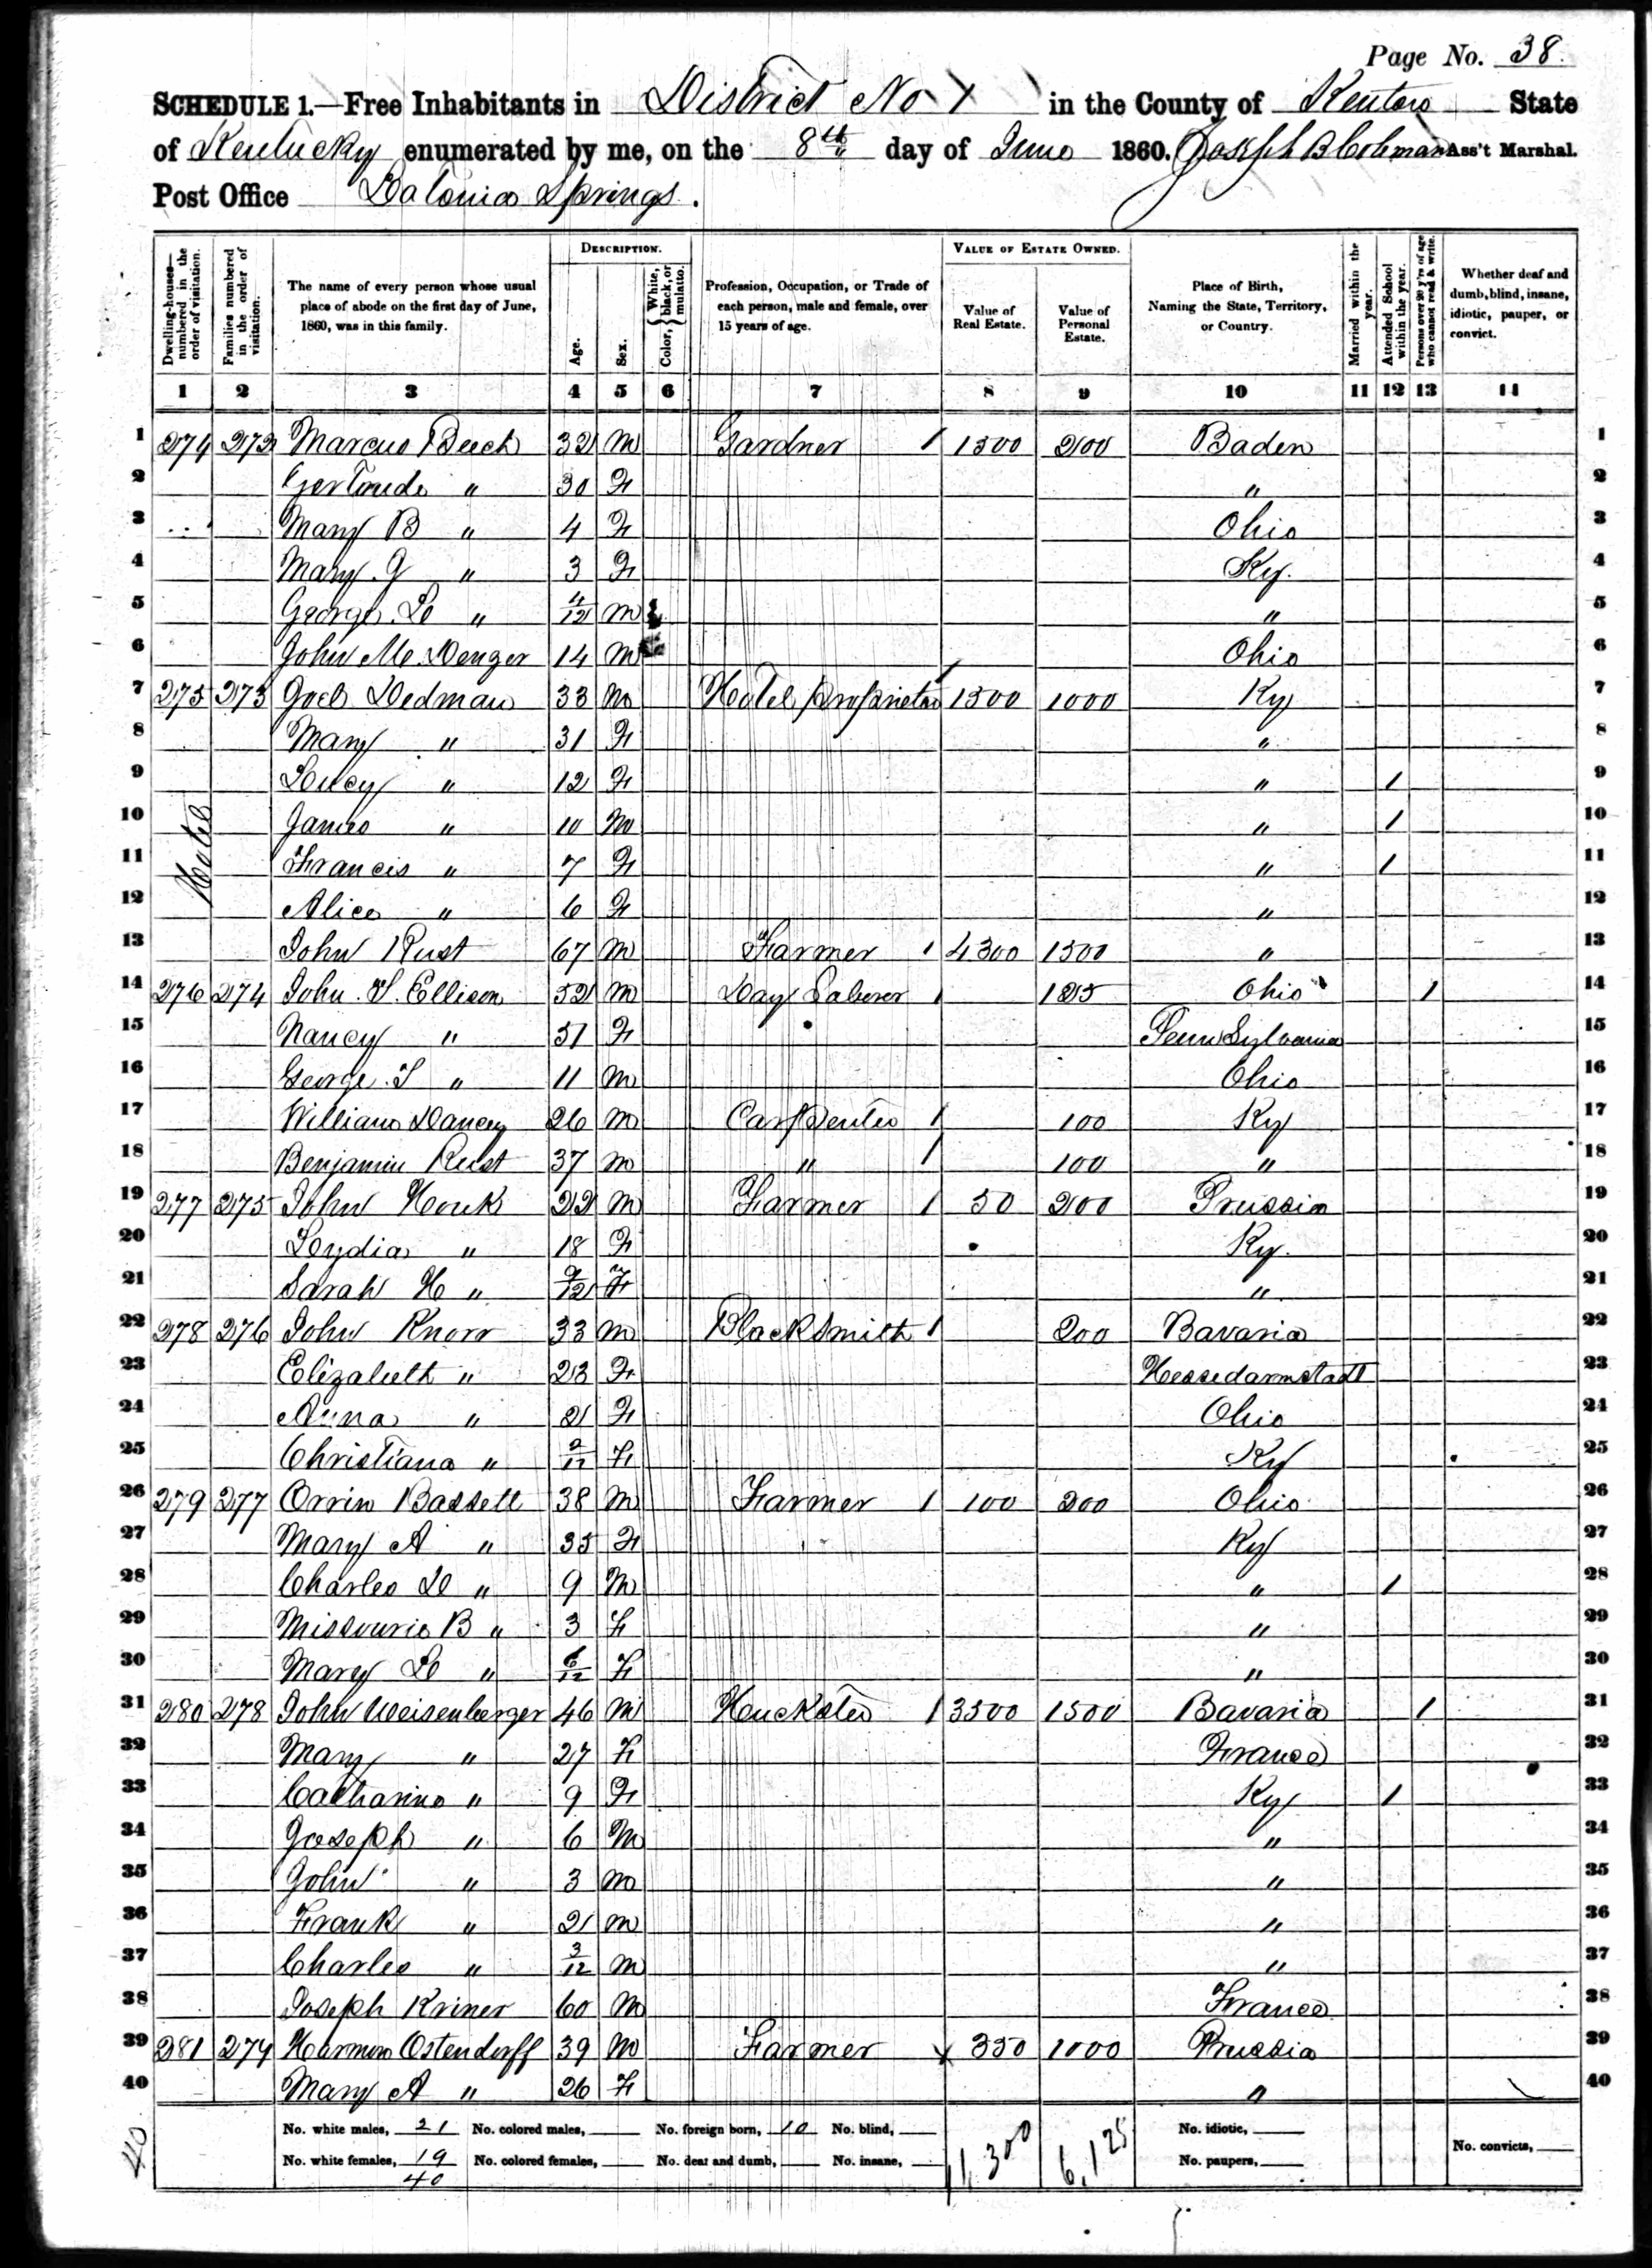 Page No. 38.
SCHEDULE 1.—Free Inhabitants in District No 1 in the County of Kenton State
of Kentucky enumerated by me, on the 8th day of June 1860. Joseph B Coleman Ass't Marshal.
Post Office Latonia Springs.
DESCRIPTION. VALUE OF ESTATE OWNED.
Dwelling-houses—numbered in the order of visitation. Families numbered in the order of visitation. The name of every person whose usual place of abode on the first day of June, 1860, was in this family. Age. Sex. Color, { White, black, or mulatto. Profession, Occupation, or Trade of each person, male and female, over 15 years of age. Value of Real Estate. Value of Personal Estate. Place of Birth, Naming the State, Territory, or Country. Married within the year. Attended School within the year. Persons over 20 y'rs of age who cannot read & write. Whether deaf and dumb, blind, insane, idiotic, pauper, or convict.
1 2 3 4 5 6 7 8 9 10 11 12 13 14
1 274 272 Marcus Beech 32 M Gardner 1 1500 200 Baden 1
2 Gertrude " 30 F " 2
3 Mary B " 4 F Ohio 3
4 Mary G " 3 F Ky. 4
5 George L " 4/12 M " 5
6 John M Denger 14 M Ohio 6
7 275 273 Joel Dedman 33 M Hotel proprietor 1 1500 1000 Ky 7
8 Mary " 31 F " 8
9 Lucy " 12 F " 1 9
10 Hotel James " 10 M " 1 10
11 Francis " 7 F " 1 11
12 Alice " 6 F " 12
13 John Rust 67 M Farmer 1 4300 1500 " 13
14 276 274 John S. Ellison 52 M Day Laborer 1 125 Ohio 1 14
15 Nancy " 51 F Pennsylvania 15
16 George T " 11 M Ohio 16
17 William Dancey 26 M Carpenter 1 100 Ky 17
18 Benjamin Rust 37 M " 1 100 " 18
19 277 275 John Houk 22 M Farmer 1 50 200 Prussia 19
20 Lydia " 18 F Ky. 20
21 Sarah H " 9/12 F " 21
22 278 276 John Knorr 33 M Blacksmith 1 200 Bavaria 22
23 Elizabeth " 23 F Hessedarmstadt 23
24 Anna " 2 F Ohio 24
25 Christiana " 2/12 F Ky 25
26 279 277 Orrin Bassett 38 M Farmer 1 100 200 Ohio 26
27 Mary A " 35 F Ky 27
28 Charles L " 9 M " 1 28
29 Missourie B " 3 F " 29
30 Mary L " 6/12 F " 30
31 280 278 John Weisenberger 46 M Huckster 1 3500 1500 Bavaria 1 31
32 Mary " 27 F France 32
33 Catharine " 9 F Ky 1 33
34 Joseph " 6 M " 34
35 John " 3 M " 35
36 Frank " 2 M " 36
37 Charles " 3/12 M " 37
38 Joseph Kriner 60 M France 38
39 281 279 Harmon Ostendorff 39 M Farmer x 350 1000 Prussia 39
40 Mary A " 26 F " 40
40 No. white males, 21 No. colored males, No. foreign born, 10 No. blind, 11,300 6,125 No. idiotic,
No. white females, 19 No. colored females, No. deaf and dumb, No. insane, No. paupers, No. convicts,
40